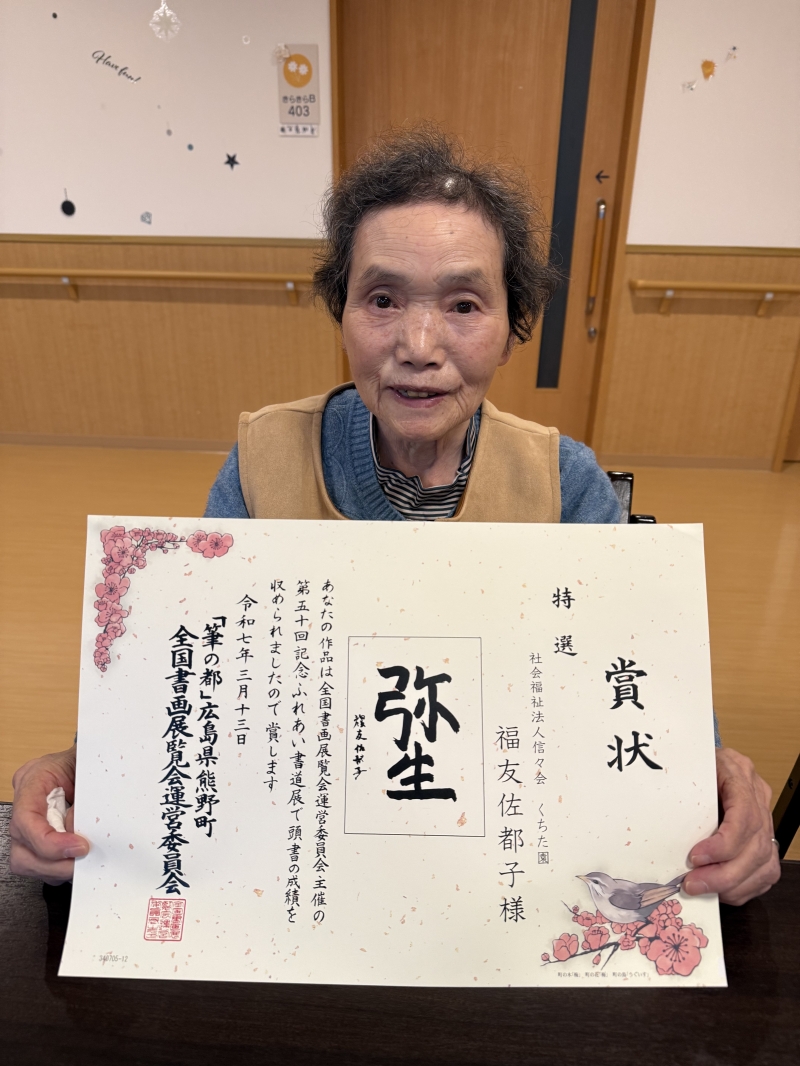 Have fun!
きらきらB
403
賞状
特選
社会福祉法人信々会 くちた園
福友佐都子様
弥生
福友佐都子
あなたの作品は全国書画展覧会運営委員会主催の
第五十回記念ふれあい書道展で頭書の成績を
収められましたので賞します
令和七年三月十三日
「筆の都」広島県熊野町
全国書画展覧会運営委員会
340705-12
町の木「梅」 町の花「梅」 町の鳥「うぐいす」